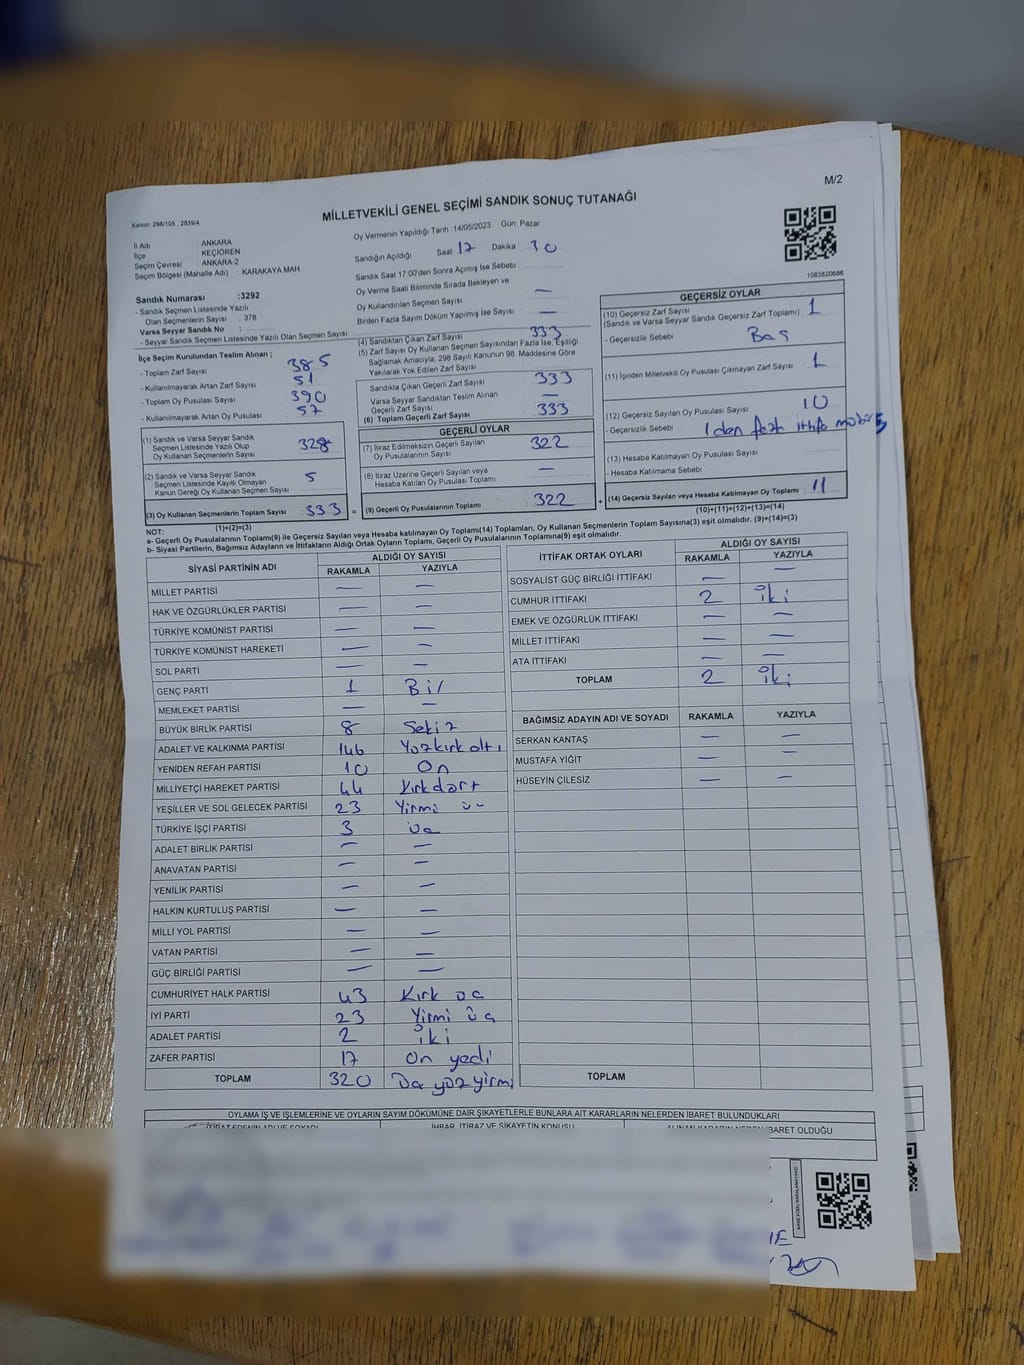 M/2
MİLLETVEKİLİ GENEL SEÇİMİ SANDIK SONUÇ TUTANAĞI
Kanun: 298/105 , 2839/4
Oy Vermenin Yapıldığı Tarih :14/05/2023 Gün Pazar
İl Adı : ANKARA
İlçe : KEÇİÖREN
Seçim Çevresi : ANKARA-2
Seçim Bölgesi (Mahalle Adı) : KARAKAYA MAH
Sandığın Açıldığı Saat 17 Dakika : 30
Sandık Saat 17:00'den Sonra Açımış İse Sebebi :
Oy Verme Saati Bitiminde Sırada Bekleyen ve
Oy Kullandırılan Seçmen Sayısı : —
Birden Fazla Sayım Döküm Yapılmış İse Sayısı : —
1083820686
Sandık Numarası :3292
- Sandık Seçmen Listesinde Yazılı
Olan Seçmenlerin Sayısı : 378
Varsa Seyyar Sandık No :
- Seyyar Sandık Seçmen Listesinde Yazılı Olan Seçmen Sayısı:
İlçe Seçim Kurulundan Teslim Alınan ;
- Toplam Zarf Sayısı : 385
- Kullanılmayarak Artan Zarf Sayısı : 51
- Toplam Oy Pusulası Sayısı : 390
- Kullanılmayarak Artan Oy Pusulası : 57
(1) Sandık ve Varsa Seyyar Sandık
Seçmen Listesinde Yazılı Olup
Oy Kullanan Seçmenlerin Sayısı : 328
(2) Sandık ve Varsa Seyyar Sandık
Seçmen Listesinde Kayıtlı Olmayan
Kanun Gereği Oy Kullanan Seçmen Sayısı : 5
(3) Oy Kullanan Seçmenlerin Toplam Sayısı : 333
(1)+(2)=(3)
(4) Sandıktan Çıkan Zarf Sayısı : 333
(5) Zarf Sayısı Oy Kullanan Seçmen Sayısından Fazla İse, Eşitliği
Sağlamak Amacıyla, 298 Sayılı Kanunun 98. Maddesine Göre
Yakılarak Yok Edilen Zarf Sayısı :
Sandıkta Çıkan Geçerli Zarf Sayısı : 333
Varsa Seyyar Sandıktan Teslim Alınan
Geçerli Zarf Sayısı : —
(6) Toplam Geçerli Zarf Sayısı : 333
GEÇERLİ OYLAR
(7) İtiraz Edilmeksizin Geçerli Sayılan
Oy Pusulalarının Sayısı : 322
(8) İtiraz Üzerine Geçerli Sayılan veya
Hesaba Katılan Oy Pusulası Toplamı : —
= (9) Geçerli Oy Pusulalarının Toplamı : 322 +
GEÇERSİZ OYLAR
(10) Geçersiz Zarf Sayısı : 1
(Sandık ve Varsa Seyyar Sandık Geçersiz Zarf Toplamı)
- Geçersizlik Sebebi : Boş
(11) İçinden Milletvekili Oy Pusulası Çıkmayan Zarf Sayısı : 1
(12) Geçersiz Sayılan Oy Pusulası Sayısı : 10
- Geçersizlik Sebebi : 1 den
(13) Hesaba Katılmayan Oy Pusulası Sayısı :
- Hesaba Katılmama Sebebi :
(14) Geçersiz Sayılan veya Hesaba Katılmayan Oy Toplamı : 11
(10)+(11)+(12)+(13)=(14)
NOT:
a- Geçerli Oy Pusulalarının Toplamı(9) ile Geçersiz Sayılan veya Hesaba katılmayan Oy Toplamı(14) Toplamları, Oy Kullanan Seçmenlerin Toplam Sayısına(3) eşit olmalıdır. (9)+(14)=(3)
b- Siyasi Partilerin, Bağımsız Adayların ve İttifakların Aldığı Ortak Oyların Toplamı, Geçerli Oy Pusulalarının Toplamına(9) eşit olmalıdır.
SİYASİ PARTİNİN ADI ALDIĞI OY SAYISI
RAKAMLA YAZIYLA
MİLLET PARTİSİ — —
HAK VE ÖZGÜRLÜKLER PARTİSİ — —
TÜRKİYE KOMÜNİST PARTİSİ — —
TÜRKİYE KOMÜNİST HAREKETİ — —
SOL PARTİ — —
GENÇ PARTİ 1 Bir
MEMLEKET PARTİSİ — —
BÜYÜK BİRLİK PARTİSİ 8 Sekiz
ADALET VE KALKINMA PARTİSİ 146 Yüzkırk altı
YENİDEN REFAH PARTİSİ 10 On
MİLLİYETÇİ HAREKET PARTİSİ 44 Kırkdört
YEŞİLLER VE SOL GELECEK PARTİSİ 23 Yirmi üç
TÜRKİYE İŞÇİ PARTİSİ 3 üç
ADALET BİRLİK PARTİSİ — —
ANAVATAN PARTİSİ — —
YENİLİK PARTİSİ — —
HALKIN KURTULUŞ PARTİSİ — —
MİLLİ YOL PARTİSİ — —
VATAN PARTİSİ — —
GÜÇ BİRLİĞİ PARTİSİ — —
CUMHURİYET HALK PARTİSİ 43 Kırk üç
İYİ PARTİ 23 Yirmi üç
ADALET PARTİSİ 2 iki
ZAFER PARTİSİ 17 On yedi
TOPLAM 320 Üç yüz yirmi
İTTİFAK ORTAK OYLARI ALDIĞI OY SAYISI
RAKAMLA YAZIYLA
SOSYALİST GÜÇ BİRLİĞİ İTTİFAKI — —
CUMHUR İTTİFAKI 2 iki
EMEK VE ÖZGÜRLÜK İTTİFAKI — —
MİLLET İTTİFAKI — —
ATA İTTİFAKI — —
TOPLAM 2 iki
BAĞIMSIZ ADAYIN ADI VE SOYADI RAKAMLA YAZIYLA
SERKAN KANTAŞ — —
MUSTAFA YİĞİT — —
HÜSEYİN ÇİLESİZ — —
TOPLAM
OYLAMA İŞ VE İŞLEMLERİNE VE OYLARIN SAYIM DÖKÜMÜNE DAİR ŞİKAYETLERLE BUNLARA AİT KARARLARIN NELERDEN İBARET BULUNDUKLARI
İTİRAZ EDENİN ADI VE SOYADI İHBAR, İTİRAZ VE ŞİKAYETİN KONUSU ALINAN KARARIN NEDEN İBARET OLDUĞU